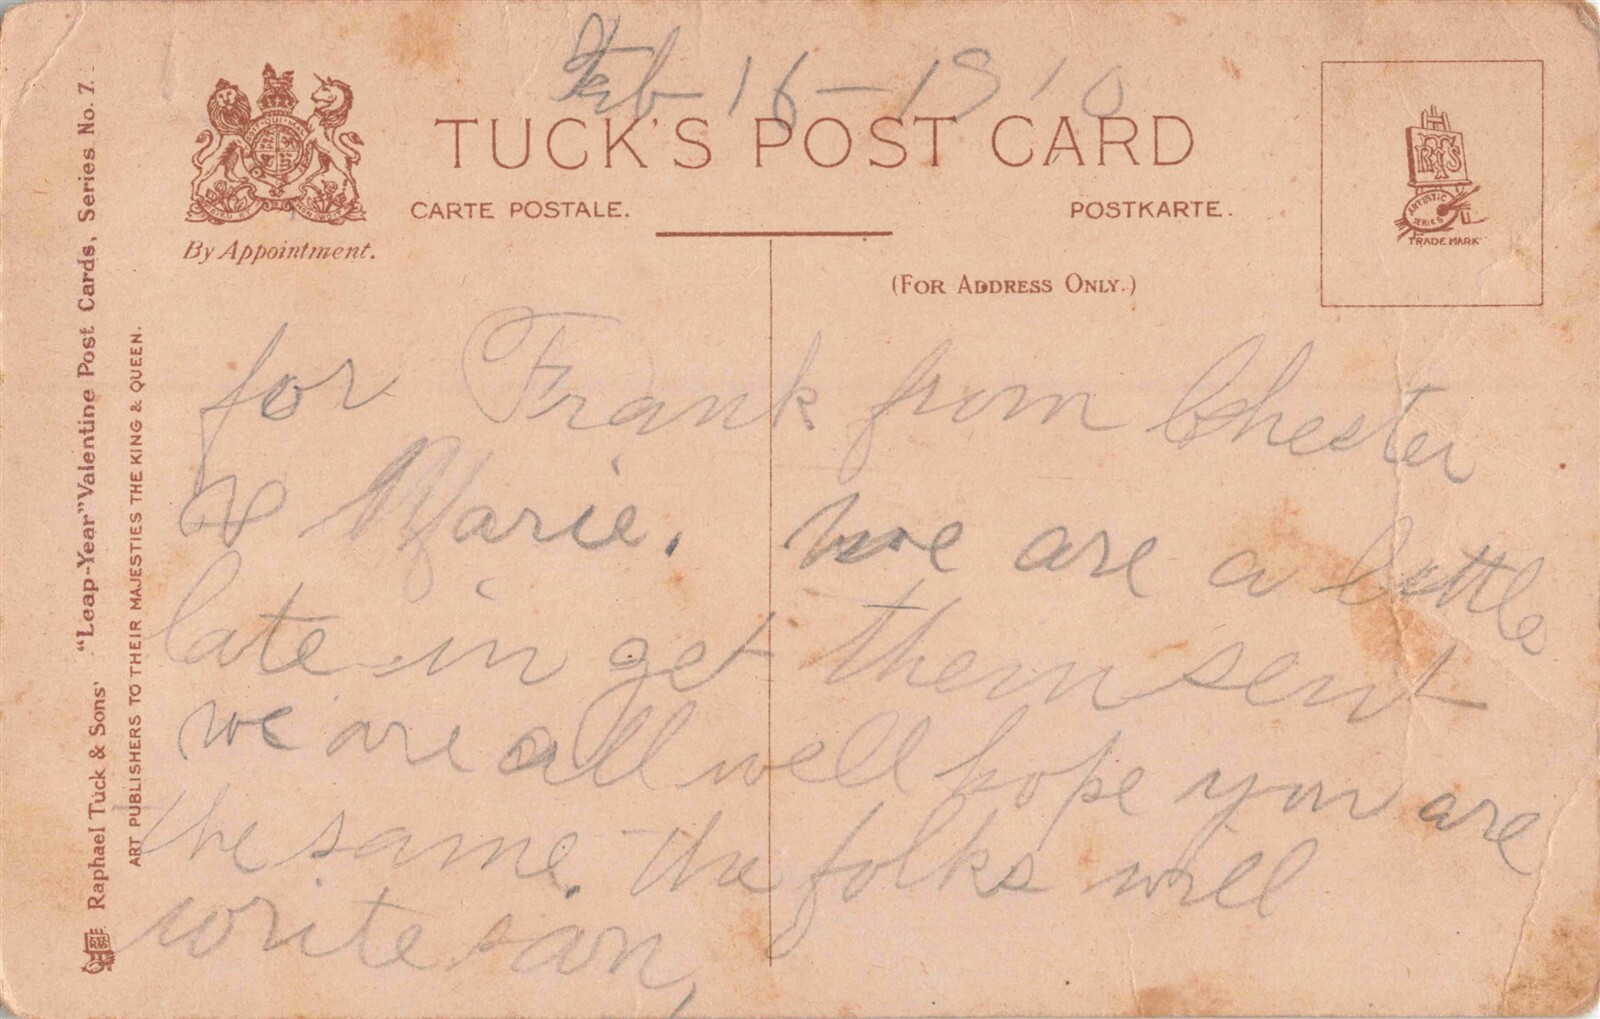 Feb 16 – 1910
TUCK'S POST CARD
CARTE POSTALE.
POSTKARTE.
By Appointment.
(FOR ADDRESS ONLY.)
RTS
ARTISTIC
SERIES
TRADE MARK
for Frank from Chester
& Marie. We are a little
late in get them sent
we are all well hope you are
the same. the folks will
write soon,
Raphael Tuck & Sons' "Leap-Year" Valentine Post Cards, Series No. 7.
ART PUBLISHERS TO THEIR MAJESTIES THE KING & QUEEN.